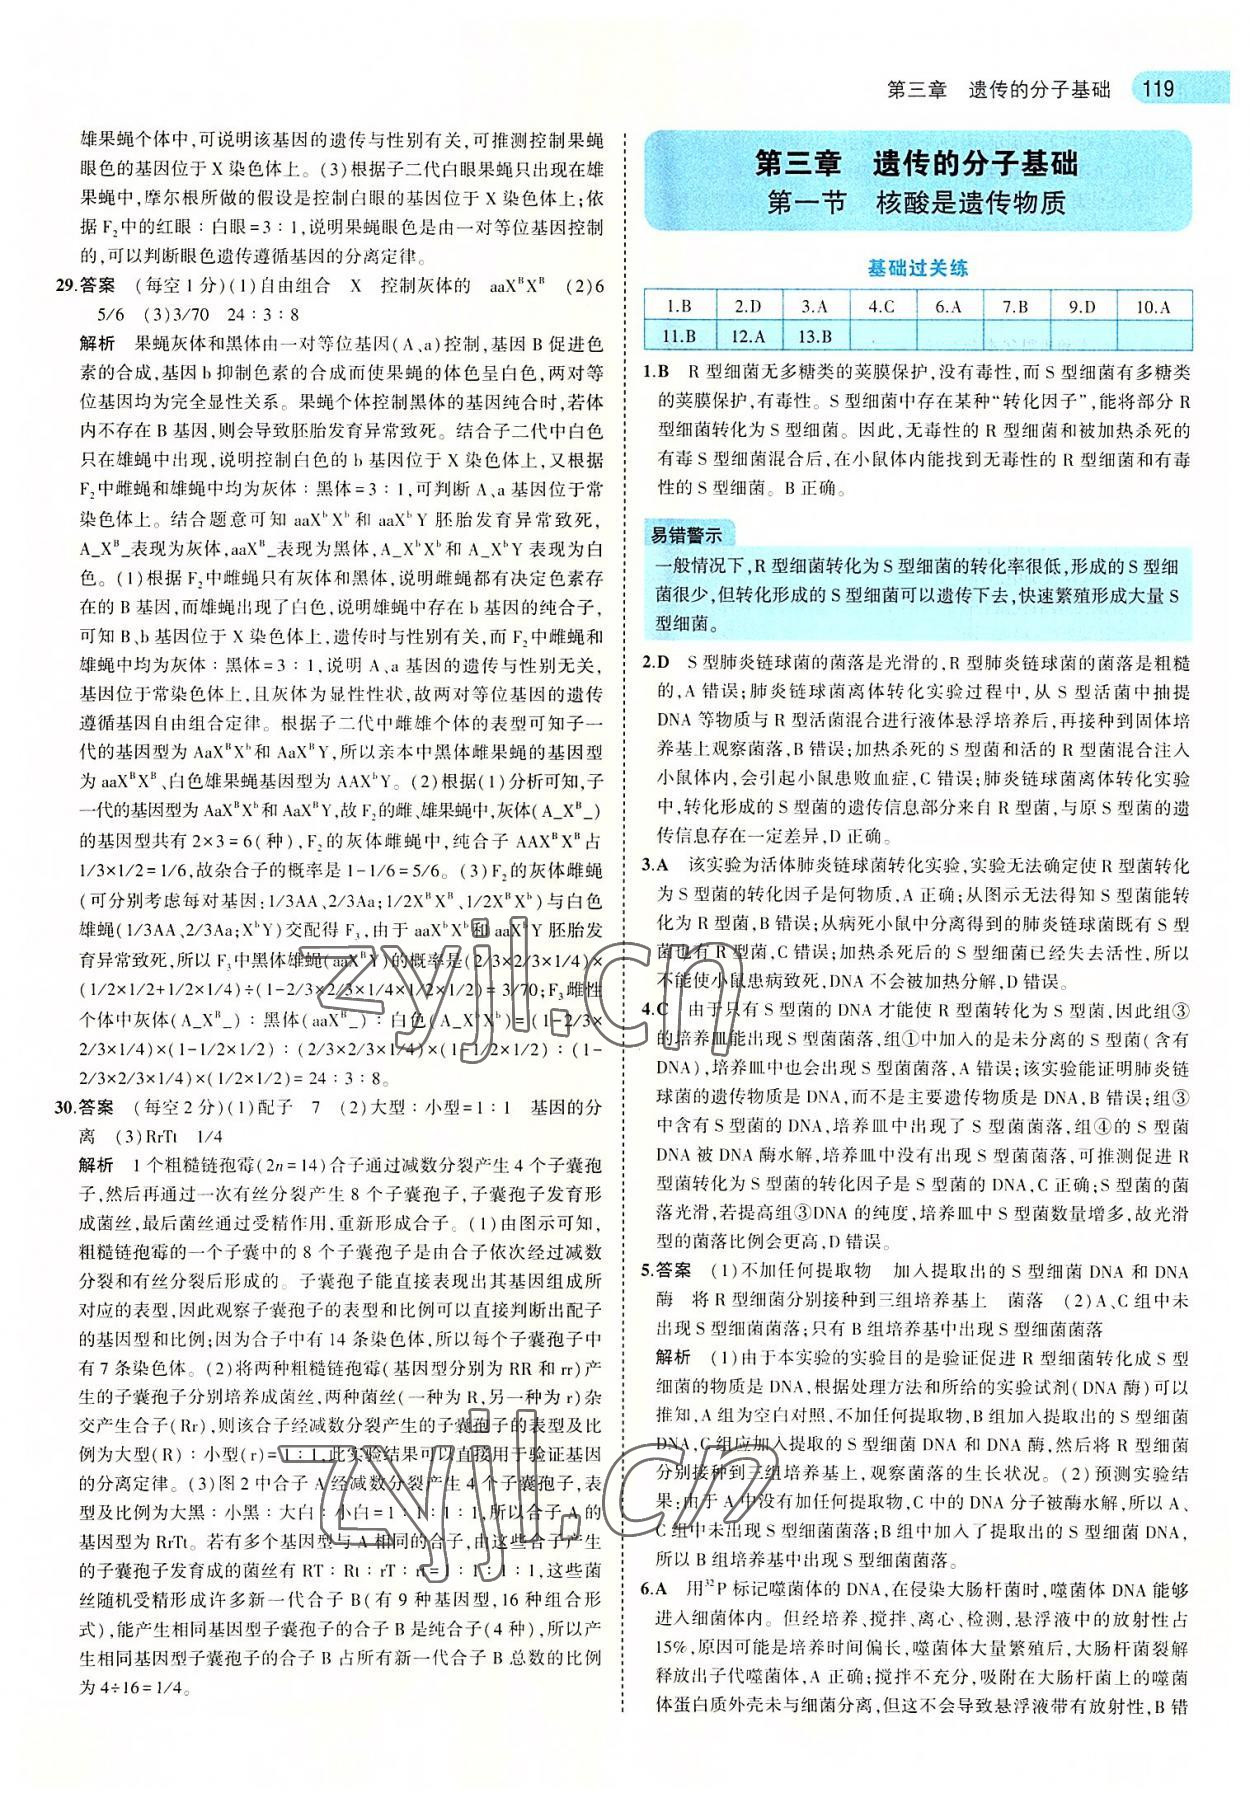 第三章　遗传的分子基础　119
雄果蝇个体中,可说明该基因的遗传与性别有关,可推测控制果蝇
眼色的基因位于 X 染色体上。(3)根据子二代白眼果蝇只出现在雄
果蝇中,摩尔根所做的假设是控制白眼的基因位于 X 染色体上;依
据 F₂中的红眼∶白眼=3∶1,说明果蝇眼色是由一对等位基因控制
的,可以判断眼色遗传遵循基因的分离定律。
29.答案　(每空 1 分)(1)自由组合　X　控制灰体的　aaXᴮXᴮ　(2)6
5/6　(3)3/70　24∶3∶8
解析　果蝇灰体和黑体由一对等位基因(A、a)控制,基因 B 促进色
素的合成,基因 b 抑制色素的合成而使果蝇的体色呈白色,两对等
位基因均为完全显性关系。果蝇个体控制黑体的基因纯合时,若体
内不存在 B 基因,则会导致胚胎发育异常致死。结合子二代中白色
只在雄蝇中出现,说明控制白色的 b 基因位于 X 染色体上,又根据
F₂中雌蝇和雄蝇中均为灰体∶黑体=3∶1,可判断 A、a 基因位于常
染色体上。结合题意可知 aaXᵇXᵇ和 aaXᵇY 胚胎发育异常致死,
A_Xᴮ_表现为灰体,aaXᴮ_表现为黑体,A_XᵇXᵇ和 A_XᵇY 表现为白
色。(1)根据 F₂中雌蝇只有灰体和黑体,说明雌蝇都有决定色素存
在的 B 基因,而雄蝇出现了白色,说明雄蝇中存在 b 基因的纯合子,
可知 B、b 基因位于 X 染色体上,遗传时与性别有关,而 F₂中雌蝇和
雄蝇中均为灰体∶黑体=3∶1,说明 A、a 基因的遗传与性别无关,
基因位于常染色体上,且灰体为显性性状,故两对等位基因的遗传
遵循基因自由组合定律。根据子二代中雌雄个体的表型可知子一
代的基因型为 AaXᴮXᵇ和 AaXᴮY,所以亲本中黑体雌果蝇的基因型
为 aaXᴮXᴮ、白色雄果蝇基因型为 AAXᵇY。(2)根据(1)分析可知,子
一代的基因型为 AaXᴮXᵇ和 AaXᴮY,故 F₂的雌、雄果蝇中,灰体(A_Xᴮ_)
的基因型共有 2×3=6(种),F₂的灰体雌蝇中,纯合子 AAXᴮXᴮ占
1/3×1/2=1/6,故杂合子的概率是 1-1/6=5/6。(3)F₂的灰体雌蝇
(可分别考虑每对基因:1/3AA、2/3Aa;1/2XᴮXᴮ、1/2XᴮXᵇ)与白色
雄蝇(1/3AA、2/3Aa;XᵇY)交配得 F₃,由于 aaXᵇXᵇ和 aaXᵇY 胚胎发
育异常致死,所以 F₃中黑体雄蝇(aaXᴮY)的概率是(2/3×2/3×1/4)×
(1/2×1/2+1/2×1/4)÷(1-2/3×2/3×1/4×1/2×1/2)=3/70;F₃雌性
个体中灰体(A_Xᴮ_)∶黑体(aaXᴮ_)∶白色(A_XᵇXᵇ)=(1-2/3×
2/3×1/4)×(1-1/2×1/2)∶(2/3×2/3×1/4)×(1-1/2×1/2)∶(1-
2/3×2/3×1/4)×(1/2×1/2)=24∶3∶8。
30.答案　(每空 2 分)(1)配子　7　(2)大型∶小型=1∶1　基因的分
离　(3)RrTt　1/4
解析　1 个粗糙链孢霉(2n=14)合子通过减数分裂产生 4 个子囊孢
子,然后再通过一次有丝分裂产生 8 个子囊孢子,子囊孢子发育形
成菌丝,最后菌丝通过受精作用,重新形成合子。(1)由图示可知,
粗糙链孢霉的一个子囊中的 8 个子囊孢子是由合子依次经过减数
分裂和有丝分裂后形成的。子囊孢子能直接表现出其基因组成所
对应的表型,因此观察子囊孢子的表型和比例可以直接判断出配子
的基因型和比例;因为合子中有 14 条染色体,所以每个子囊孢子中
有 7 条染色体。(2)将两种粗糙链孢霉(基因型分别为 RR 和 rr)产
生的子囊孢子分别培养成菌丝,两种菌丝(一种为 R,另一种为 r)杂
交产生合子(Rr),则该合子经减数分裂产生的子囊孢子的表型及比
例为大型(R)∶小型(r)=1∶1,此实验结果可以直接用于验证基因
的分离定律。(3)图 2 中合子 A 经减数分裂产生 4 个子囊孢子,表
型及比例为大黑∶小黑∶大白∶小白=1∶1∶1∶1,所以合子 A 的
基因型为 RrTt。若有多个基因型与 A 相同的合子,由这些合子产生
的子囊孢子发育成的菌丝有 RT∶Rt∶rT∶rt=1∶1∶1∶1,这些菌
丝随机受精形成许多新一代合子 B(有 9 种基因型,16 种组合形
式),能产生相同基因型子囊孢子的合子 B 是纯合子(4 种),所以产
生相同基因型子囊孢子的合子 B 占所有新一代合子 B 总数的比例
为 4÷16=1/4。
第三章　遗传的分子基础
第一节　核酸是遗传物质
基础过关练
1.B　2.D　3.A　4.C　6.A　7.B　9.D　10.A
11.B　12.A　13.B
1.B　R 型细菌无多糖类的荚膜保护,没有毒性,而 S 型细菌有多糖类
的荚膜保护,有毒性。S 型细菌中存在某种“转化因子”,能将部分 R
型细菌转化为 S 型细菌。因此,无毒性的 R 型细菌和被加热杀死的
有毒 S 型细菌混合后,在小鼠体内能找到无毒性的 R 型细菌和有毒
性的 S 型细菌。B 正确。
易错警示
一般情况下,R 型细菌转化为 S 型细菌的转化率很低,形成的 S 型细
菌很少,但转化形成的 S 型细菌可以遗传下去,快速繁殖形成大量 S
型细菌。
2.D　S 型肺炎链球菌的菌落是光滑的,R 型肺炎链球菌的菌落是粗糙
的,A 错误;肺炎链球菌离体转化实验过程中,从 S 型活菌中抽提
DNA 等物质与 R 型活菌混合进行液体悬浮培养后,再接种到固体培
养基上观察菌落,B 错误;加热杀死的 S 型菌和活的 R 型菌混合注入
小鼠体内,会引起小鼠患败血症,C 错误;肺炎链球菌离体转化实验
中,转化形成的 S 型菌的遗传信息部分来自 R 型菌,与原 S 型菌的遗
传信息存在一定差异,D 正确。
3.A　该实验为活体肺炎链球菌转化实验,实验无法确定使 R 型菌转化
为 S 型菌的转化因子是何物质,A 正确;从图示无法得知 S 型菌能转
化为 R 型菌,B 错误;从病死小鼠中分离得到的肺炎链球菌既有 S 型
菌也有 R 型菌,C 错误;加热杀死后的 S 型细菌已经失去活性,所以
不能使小鼠患病致死,DNA 不会被加热分解,D 错误。
4.C　由于只有 S 型菌的 DNA 才能使 R 型菌转化为 S 型菌,因此组③
的培养皿能出现 S 型菌菌落,组①中加入的是未分离的 S 型菌(含有
DNA),培养皿中也会出现 S 型菌菌落,A 错误;该实验能证明肺炎链
球菌的遗传物质是 DNA,而不是主要遗传物质是 DNA,B 错误;组③
中含有 S 型菌的 DNA,培养皿中出现了 S 型菌菌落,组④的 S 型菌
DNA 被 DNA 酶水解,培养皿中没有出现 S 型菌菌落,可推测促进 R
型菌转化为 S 型菌的转化因子是 S 型菌的 DNA,C 正确;S 型菌的菌
落光滑,若提高组③DNA 的纯度,培养皿中 S 型菌数量增多,故光滑
型的菌落比例会更高,D 错误。
5.答案　(1)不加任何提取物　加入提取出的 S 型细菌 DNA 和 DNA
酶　将 R 型细菌分别接种到三组培养基上　菌落　(2)A、C 组中未
出现 S 型细菌菌落;只有 B 组培养基中出现 S 型细菌菌落
解析　(1)由于本实验的实验目的是验证促进 R 型细菌转化成 S 型
细菌的物质是 DNA,根据处理方法和所给的实验试剂(DNA 酶)可以
推知,A 组为空白对照,不加任何提取物,B 组加入提取出的 S 型细菌
DNA,C 组应加入提取出的 S 型细菌 DNA 和 DNA 酶,然后将 R 型细菌
分别接种到三组培养基上,观察菌落的生长状况。(2)预测实验结
果:由于 A 中没有加任何提取物,C 中的 DNA 分子被酶水解,所以 A、
C 组中未出现 S 型细菌菌落;B 组中加入了提取出的 S 型细菌 DNA,
所以 B 组培养基中出现 S 型细菌菌落。
6.A　用³²P 标记噬菌体的 DNA,在侵染大肠杆菌时,噬菌体 DNA 能够
进入细菌体内。但经培养、搅拌、离心、检测,悬浮液中的放射性占
15%,原因可能是培养时间偏长,噬菌体大量繁殖后,大肠杆菌裂解
释放出子代噬菌体,A 正确;搅拌不充分,吸附在大肠杆菌上的噬菌
体蛋白质外壳未与细菌分离,但这不会导致悬浮液带有放射性,B 错
zyjl.cn
zyjl.cn